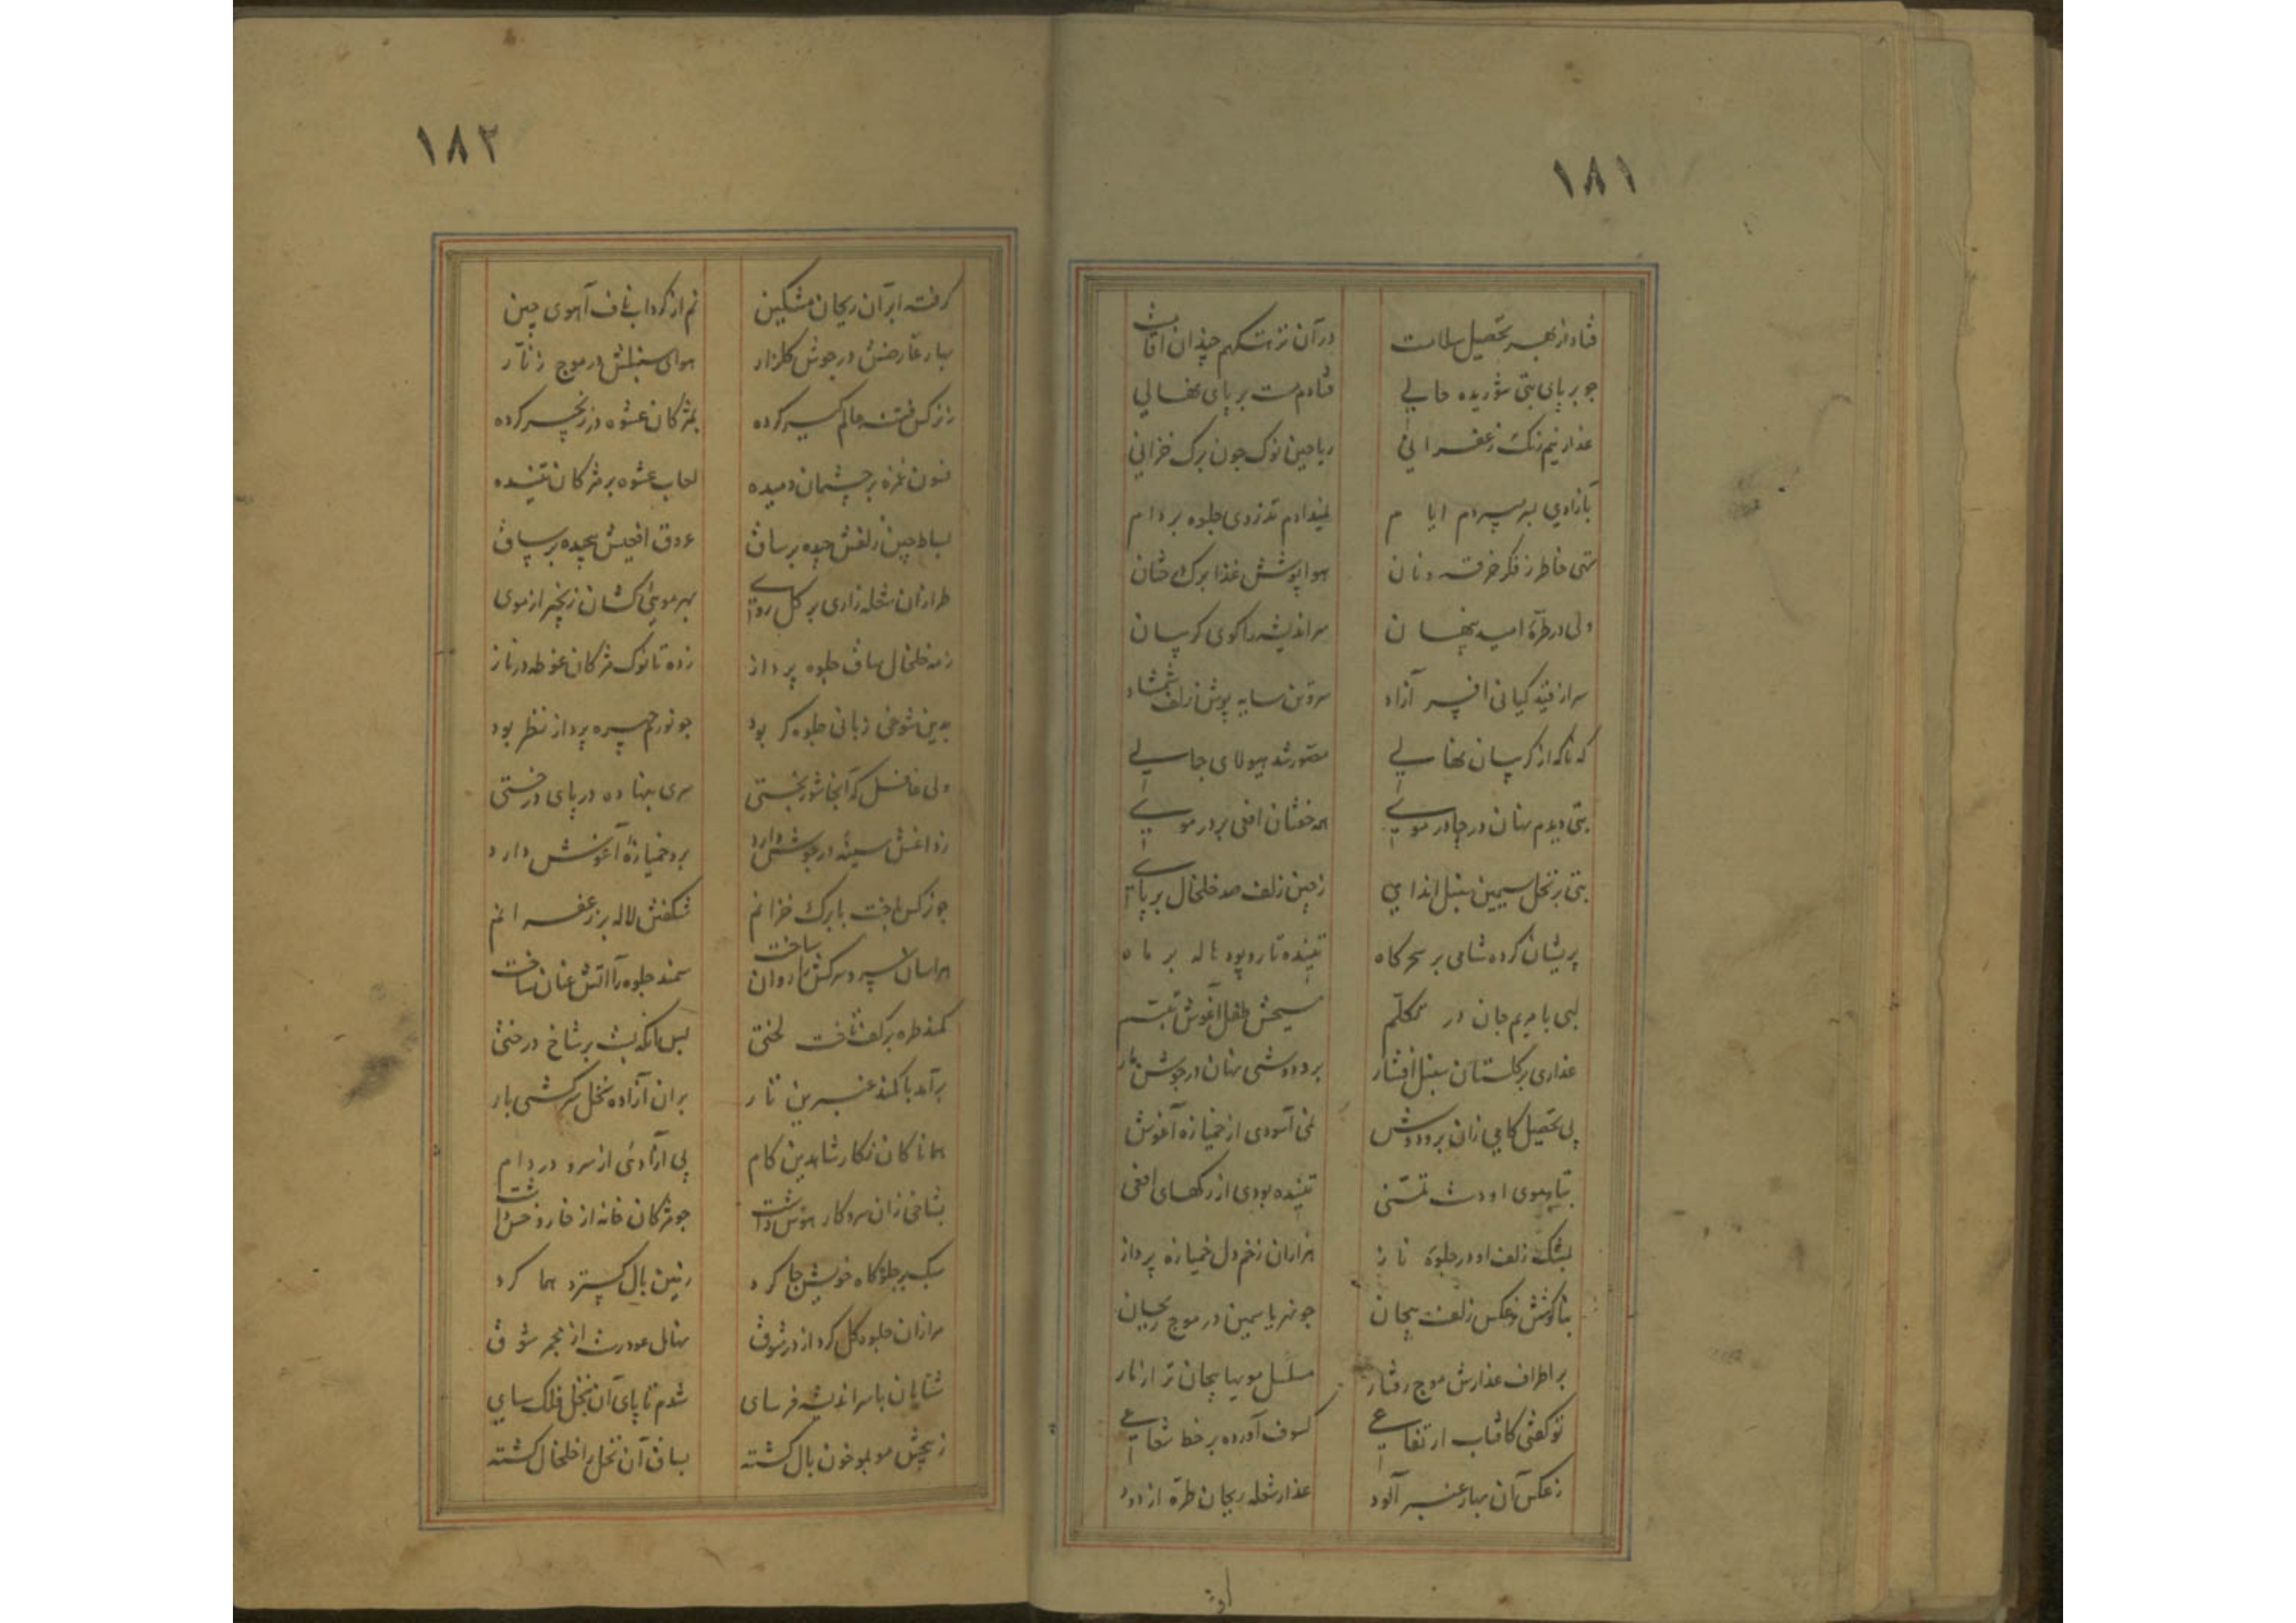 ۱۸۱
فتاد از بهر تحصیل سلامت در آن نزهتگهم چندان اقامت
جو بر پای بتی شوریده حالی فتادم مست بر پای نهالی
عذار نیم رنگ زعفرانی ریاحین نوک جون برک خزانی
بازادی بسر میبردم ایام تذروی جلوه بر دام
تهی خاطر ز فکر خرقه و نان هوا پوشش غذا برک
ولی در طرهٔ امید پنهان سر اندیشه را کوی کریبان
سر از قید کیانی افسر آزاد سروتن سایه پوش زلف شمشاد
که ناکه از کریبان نهالی مصور شد هیولای جمالی
بتی دیدم نهان در چادر موی همه خفتان افعی بر در موی
بتی بر نخل سیمین سنبل اندای ز چین زلف صد خلخال بر پای
پریشان کرده شامی بر سحرکاه تنیده تار و پود هاله بر ماه
لبی با مریم جان در تکلم مسیحش طفل آغوش تبسم
عذاری بر کلستان سنبل افشار بر و دوشی نهان در جوش
پی تحصیل کامی زان بر و دوش نمی آسودی از خمیازه آغوش
تنیده بودی از رکهای افعی
بمشک زلف او در جلوهٔ ناز هزاران زخم دل خمیازه پرداز
بناکوشش ز عکس زلف پیجان جو نهر یاسمین در موج ریحان
بر اطراف عذارش موج رفتار مسلسل مویها پیجان تر از نار
تو کفتی کافتاب ارتفاعی کسوف آورده بر خط شعاعی
ز عکس آن بهار عنبر آلود عذار شعله ریحان طره از دود
۱۸۲
کرفته ابر آن ریحان مشکین نم از کرداب ناف آهوی چین
بهار عارضش در جوش کلزار هوای سنبلش در موج زنار
ز نرکس فتنه عالم کیر کرده بمژکان عشوه در زنجیر کرده
فسون غمزه بر چشمان دمیده لعاب عشوه بر مژکان تنیده
بساط چین زلفش چیده بر ساق عروق افعیش پیچیده بر ساق
طرازان شعله زاری بر کل روی بهر مویی کشان زنجیر از موی
زمه خلخال ساق جلوه پرداز زده تا نوک مژکان غوطه در ناز
بدین شوخی زبانی جلوه کر بود جو نورم چهره پرداز نظر بود
ولی غافل که آنجا شوربختی سری بنهاده در پای درختی
ز داغش سینه در جوش دارد بر و خمیازهٔ آغوش دارد
جو نرکس باخت با برک خزانم شکفتش لاله بر زعفرانم
هراسان سرو سرکش را روان ساخت سمند جلوه را آتش عنان ساخت
کمند طره بر کف تافت لختی پس آنکه بست بر شاخ درختی
بر آمد با کمند عنبرین تار بر آن آزاده نخل سرکشی بار
همانا کان نکار شاهدین کام پی آزادی از سرو در دام
بشاخی زان سروکار هوس داشت جو مژکان خانه از خار و خس داشت
سبک بر جلوه کاه خویش جا کرد زنین بال کستر هما کرد
مرا زان جلوه کل کرد از در شوق نهال عود رست از مجمر شوق
شتابان با سر اندیشه فرسای شدم تا پای آن نخل فلک سای
ز پیچش مو بمو خون بال کشته بساق آن نخل را خلخال کشته